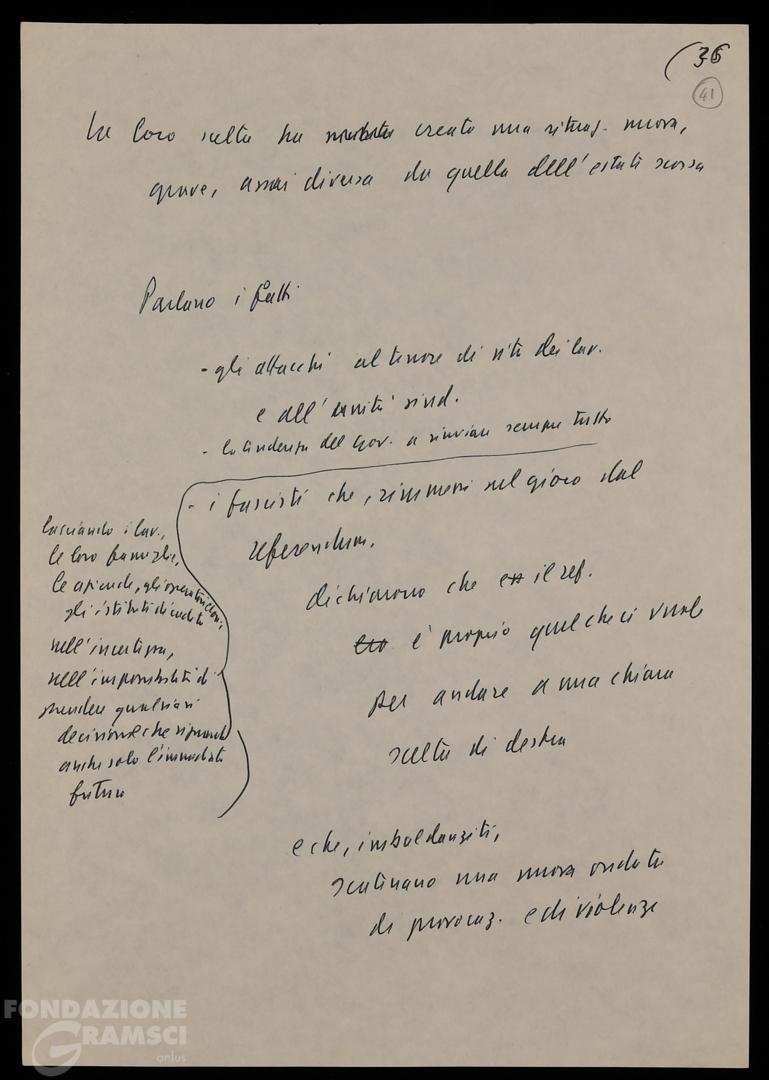 (36
41
La loro scelta ha creato una situaz. nuova,
grave, assai diversa da quella dell'estate scorsa
Parlano i fatti
- gli attacchi al tenore di vita dei lav.
e all'unità sind.
- la tendenza del Gov. a rinviare sempre tutto
lasciando i lav.,
le loro famiglie,
le aziende, gli operatori econ.,
gli istituti di credito
nell'incertezza,
nell'impossibilità di
prendere qualsiasi
decisione che riguardi
anche solo l'immediato
futuro
- i fascisti che, rimessi nel gioco dal
referendum,
dichiarano che il ref.
è proprio quel che ci vuole
per andare a una chiara
scelta di destra
e che, imbaldanziti,
scatenano una nuova ondata
di provocaz. e di violenze
FONDAZIONE
GRAMSCI
onlus